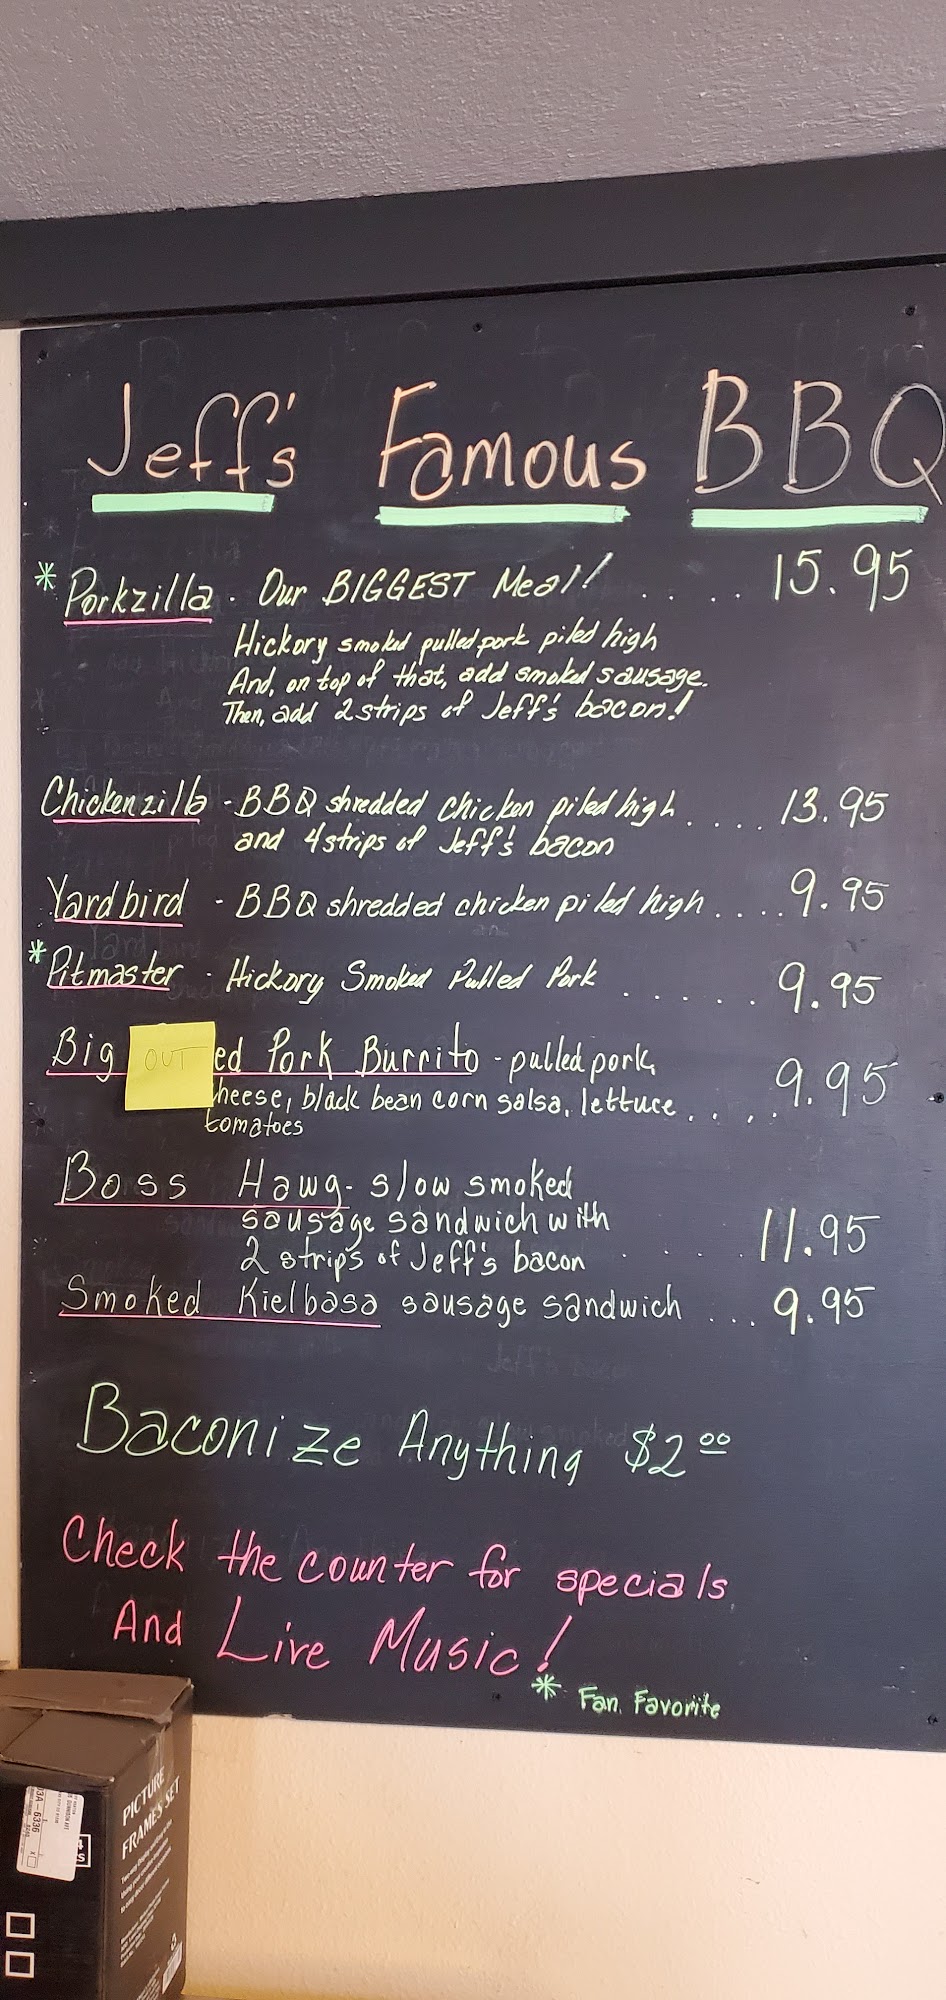 Jeff's Famous BBQ
* Porkzilla - Our BIGGEST Meal! . . . . 15.95
Hickory smoked pulled pork piled high
And, on top of that, add smoked sausage.
Then, add 2 strips of Jeff's bacon!
Chickenzilla - BBQ shredded chicken piled high . . . . 13.95
and 4 strips of Jeff's bacon
Yardbird - BBQ shredded chicken piled high . . . . 9.95
* Pitmaster - Hickory Smoked Pulled Pork . . . . . . 9.95
Big OUT ed Pork Burrito - pulled pork,
heese, black bean corn salsa, lettuce . . . . 9.95
tomatoes
Boss Hawg - slow smoked
sausage sandwich with
2 strips of Jeff's bacon . . . . 11.95
Smoked Kielbasa sausage sandwich . . . 9.95
Baconize Anything $2.00
Check the counter for specials
And Live Music!
* Fan Favorite
PICTURE
FRAMES SET